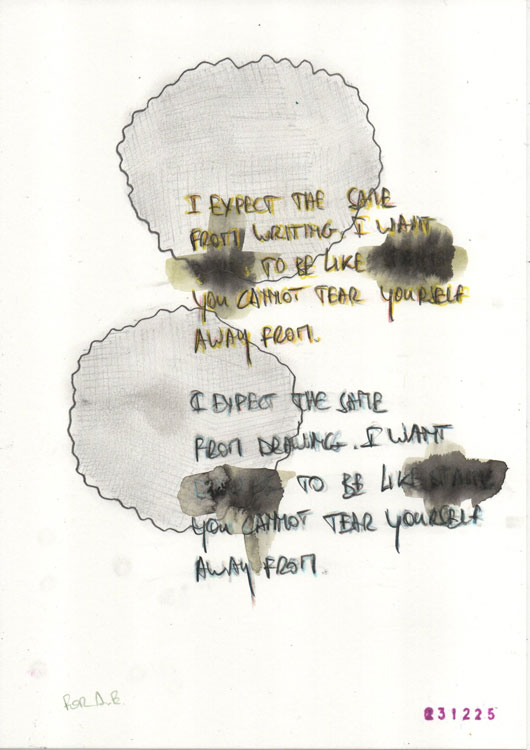 I EXPECT THE SAME
FROM WRITING. I WANT
TO BE LIKE
YOU CANNOT TEAR YOURSELF
AWAY FROM.
I EXPECT THE SAME
FROM DRAWING. I WANT
TO BE LIKE
YOU CANNOT TEAR YOURSELF
AWAY FROM.
FOR A.E.
231225